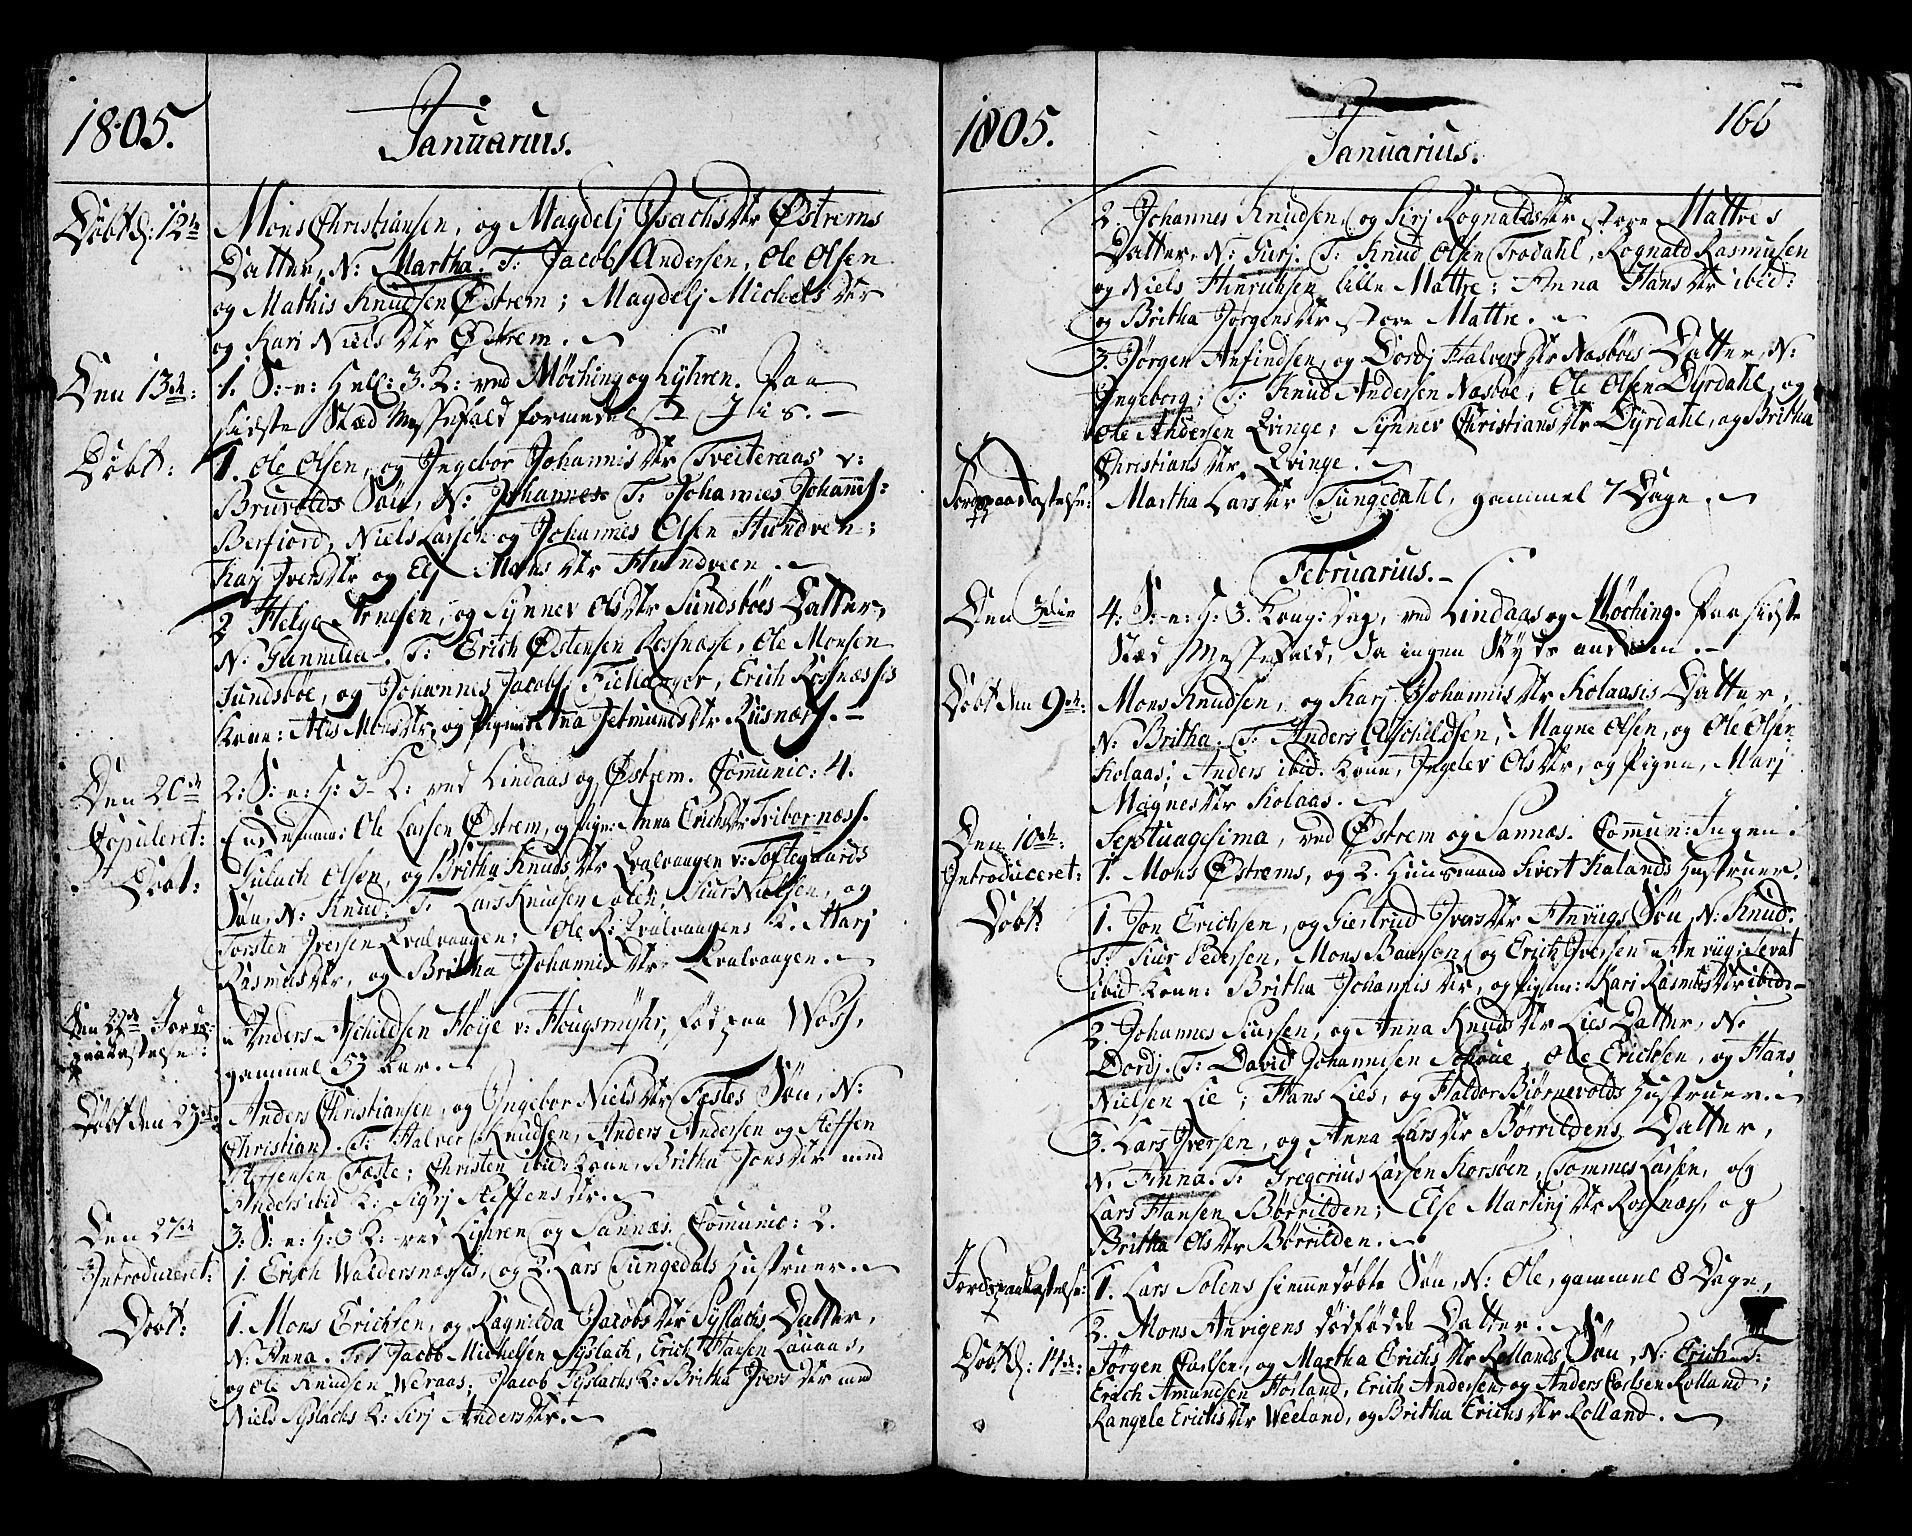 1805.
Januarius.
Døbt d: 12te
Mons Christiansen, og Magdelj Isachs dtr Østrems
Datter, N: Martha. T: Jacob Andersen, Ole Olsen
og Mathis Knudsen Østrem; Magdelj Michels dtr
og Kari Niels dtr Østrem.
Den 13de:
1. S: e: Hell: 3. K: ved Møching og Lyhren. Paa
sidste Stæd Messefald formedelst Iis. -
Døbt:
1. Ole Olsen, og Ingebor Johannis dtr Tveiteraas v:
Bruvolds Søn, N: Johannes. T: Johannes Johannis:
Berfiord, Niels Larsen og Johannes Olsen Hundven;
Karj Ivers dtr og Elj Mons dtr Hundveen.
2 Helge Arnesen, og Synnev Ols dtr Sundsbøes Datter,
N: Gunnilda. T: Erich Østensen Rosnæsse, Ole Monsen
Sundsbøe, og Johannes Jacobs: Fieldanger, Erich Rosnæssis
Kone: Alis Mons dtr, og Pigen Ana Jetmunds dtr Riisnæss. -
Den 20de
2: S: e: H: 3 K: ved Lindaas og Østrem. Comunic: 4.
Copuleret:
Enkemand: Ole Larsen Østrem, og Pige: Anna Erichs dtr Fribornæss.
Døbt:
Gulach Olsen, og Britha Knuds dtr Qvalvaagen v: Toftegaards
Søn, N: Knud. T: Lars Knudsen Solen, Siur Nielsen, og
Torsten Iversen Qvalvaagen; Ole R: Qvalvaagens K. Marj
Rasmus dtr, og Britha Johannis dtr Qvalvaagen.
Den 22de Jords-
paakastelse:
Anders Aschildsen Høije v: Hougsmyhr, fød paa Woss,
gammel 53 Aar.
Døbt den 23de:
Anders Christiansen, og Ingebor Niels dtr Fæstes Søn, N:
Christian. T: Halver Knudsen, Anders Andersen og Steffen
Steffensen Fæste; Christen ibid: Kone, Britha Jons dtr med
Anders ibid K: Sigrj Steffens dtr.
Den 27de
3: S: e: H: 3 K: ved Lyhren og Sannæs. Comunic: 2.
Introduceret:
1. Erich Waldersnæssis, og 2. Lars Tungedals Hustruer.
Døbt:
1. Mons Erichsen, og Ragnilda Jacobs dtr Syslachs Datter,
N: Anna. T: Jacob Michelsen Syslach, Erich Hansen Lauaas,
og Ole Knudsen Weraas; Jacob Syslachs K: Britha Ivers dtr med
Niels Syslachs K: Sirj Anders dtr.
1805.
166
Januarius.
2. Johannes Knudsen, og Sirj Rognalds dtr store Mattres
Datter, N: Gurj. T: Knud Olsen Trodahl, Rognald Rasmusen
og Niels Hinrichsen lille Mattre; Anna Hans dtr ibid:
og Britha Jørgens dtr store Mattre.
3. Jørgen Anfindsen, og Dordj Halvers dtr Nasbøes Datter, N:
Ingeborg; T: Knud Andersen Nasbøe, Ole Olsen Dyrdahl, og
Ole Andersen Qvinge; Synnev Christians dtr Dyrdahl, og Britha
Christians dtr Qvinge.
Jordspaakastelse:
Martha Lars dtr Tungedahl, gammel 7 Dage.
Februarius. -
Den 3die
4: S: e: H: 3. Kong: dag, ved Lindaas og Møching. Paa sidste
Stæd Messefald, da ingen Skyds ankom. -
Døbt den 9de:
Mons Knudsen, og Karj Johannis dtr Kolaasis Datter,
N: Britha. T: Anders Aschildsen, Magne Olsen, og Ole Olsen
Kolaas; Anders ibid: Kone, Ingelev Ols dtr, og Pigen, Marj
Magnes dtr Kolaas.
Den 10de:
Septuagesima, ved Østrem og Sannæs. Commun: Ingen.
Introduceret:
1. Mons Østrems, og 2. Huusmand Sivert Kalands Hustruer.
Døbt
1. Jon Erichsen, og Giertrud Ivers dtr Anvügs Søn, N: Knud.
T: Siur Pedersen, Mons Baarsen, og Erich Iversen Anviig;
ibid: Kone: Britha Johannis dtr, og Pigen: Kari Rasmus dtr ibid: -
2. Johannes Siursen, og Anna Knuds dtr Lies Datter, N:
Dordj. T: David Johannesen Schoue, Ole Erichsen, og Hans
Nielsen Lie; Hans Lies, og Haldor Biørnevolds Hustruer.
3. Lars Iversen, og Anna Lars dtr Børrildens Datter,
N: Anna. T: Gregorius Larsen Korsøen, Tommes Larsen, og
Lars Hansen Børrilden; Else Martinj dtr Rosnæss, og
Britha Ols dtr Børrilden.
Jordspaakastelse:
1. Lars Solens hiemmedøbte Søn, N: Ole, gammel 8 Dage,
2. Mons Anvigens dødfødde Datter.
Døbt d: 14de:
Jørgen Carlsen, og Martha Erichs dtr Rollands Søn, N: Erich. T:
Erich Amundsen Høiland, Erich Andersen, og Anders Carlsen Rolland;
Rangele Erichs dtr Weeland, og Britha Erichs dtr Rolland.